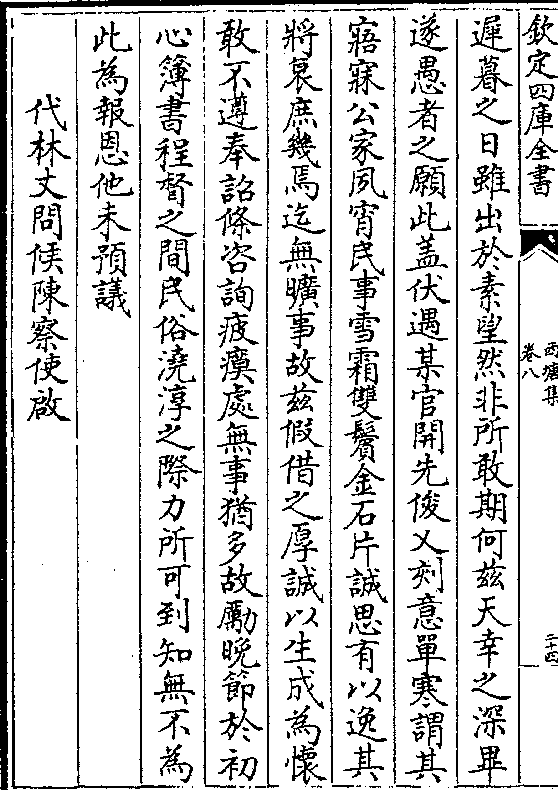 欽定四庫全書
西塘集
卷八
二十四
遲暮之日雖出於素望然非所敢期何兹天幸之深畢
遂愚者之願此盖伏遇某官開先俊乂刻意單寒謂其
寤寐公家夙宵民事雪霜雙鬢金石片誠思有以逸其
將衰庶幾焉迄無曠事故兹假借之厚誠以生成為懷
敢不遵奉詔條咨詢疲瘼處無事猶多故勵晚節於初
心簿書程督之間民俗澆淳之際力所可到知無不為
此為報恩他未預議
代林丈問候陳察使啟